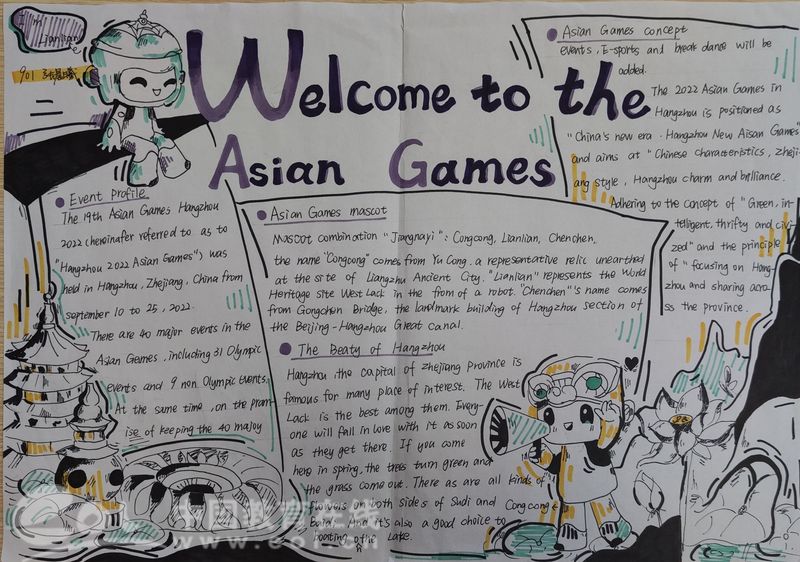 I'm
Lianlian
901
Welcome to the
Asian Games
Event Profile
The 19th Asian Games Hangzhou
2022 chereinafer referred to as to
"Hangzhou 2022 Asian Games") was
held in Hangzhou, Zhejiang, China from
september 10 to 25, 2022.
There are 40 major events in the
Asian Games, including 31 Olympic
events and 9 non Olympic Events.
At the same time, on the prem-
ise of keeping the 40 majoy
Asian Games mascot
Mascot combination "Jiangnayi": Congcong, Lianlian, Chenchen.
the name "Congcong" comes from Yu Cong. a representative relic unearthed
at the site of Liangzhu Ancient City. "Lianlian" represents the World
Heritage site West Lack in the from of a robot. "Chenchen"'s name comes
from Gongchen Bridge, the landmark building of Hangzhou section of
the Beijing-Hangzhou Great canal.
The Beaty of Hangzhou
Hangzhou, the capital of zhejiang Province is
famous for many place of interest. The West
Lack is the best among them. Every-
one will fall in love with it as soon
as they get there. If you come
here in spring, the trees turn green and
the grass come out. There as are all kinds of
flowers on both sides of Sudi and
And it's also a good choice to
boating the Lake.
Asian Games concept
events, E-sports and break dance will be
added.
The 2022 Asian Games in
Hangzhou is positioned as
"China's new era. Hangzhou New Aisan Games"
and aims at "Chinese characteristics, zheji-
ang style, Hangzhou charm and brilliance.
Adhering to the concept of "Green, in-
telligent, thrifty and civi-
zed" and the principle
of "focusing on Hang-
zhou and sharing acro-
ss the province.
中国教育在线
www.eol.cn